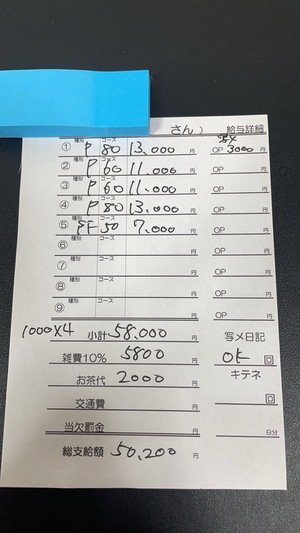 さん） 給与詳細
① 種別 P コース 80 13.000 円 OP 3000 円
② 種別 P コース 60 11.000 円 OP 円
③ 種別 P コース 60 11.000 円 OP 円
④ 種別 P コース 80 13.000 円 OP 円
⑤ 種別 PF コース 50 7.000 円 OP 円
⑥ 種別 コース 円 OP 円
⑦ 種別 コース 円 OP 円
⑧ 種別 コース 円 OP 円
⑨ 種別 コース 円 OP 円
1000×4 小計 58.000 円 写メ日記
雑費10% 5800 円 OK 回
お茶代 2000 円 キテネ
交通費 円 回
当欠罰金 円 日分
総支給額 50,200 円